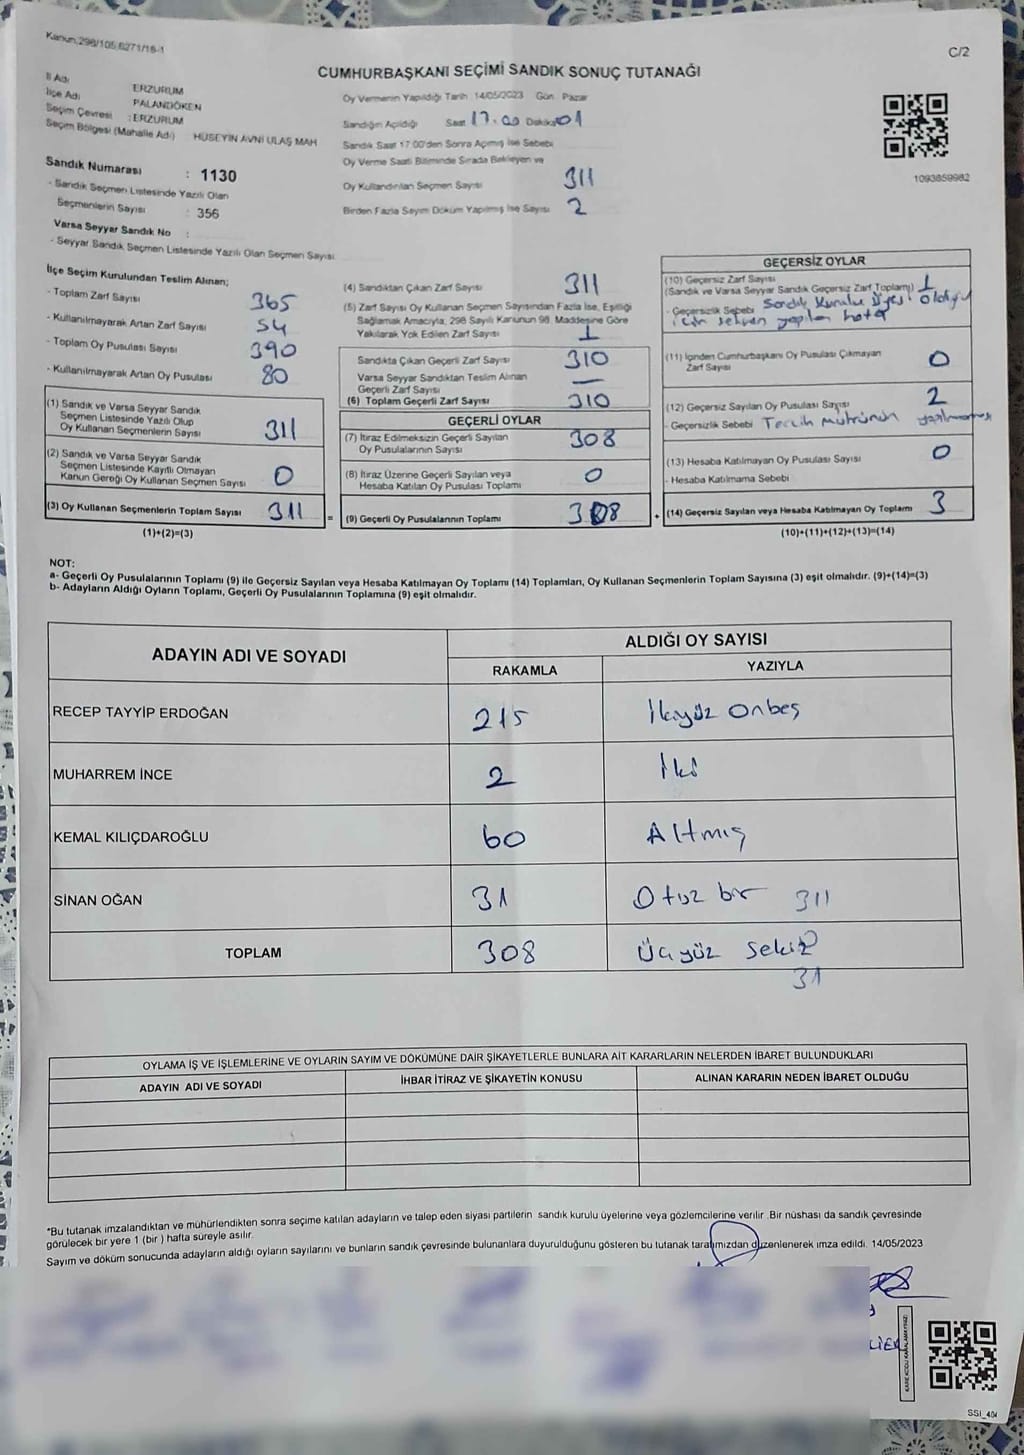 Kanun:298/105,6271/18-1
C/2
CUMHURBAŞKANI SEÇİMİ SANDIK SONUÇ TUTANAĞI
İl Adı : ERZURUM
İlçe Adı : PALANDÖKEN
Seçim Çevresi : ERZURUM
Seçim Bölgesi (Mahalle Adı) HÜSEYİN AVNİ ULAŞ MAH
Sandık Numarası : 1130
- Sandık Seçmen Listesinde Yazılı Olan
Seçmenlerin Sayısı : 356
Varsa Seyyar Sandık No :
- Seyyar Sandık Seçmen Listesinde Yazılı Olan Seçmen Sayısı
Oy Vermenin Yapıldığı Tarih :14/05/2023 Gün: Pazar
Sandığın Açıldığı Saat 17.00 Dakika 01
Sandık Saat 17.00'den Sonra Açılmış İse Sebebi
Oy Verme Saati Bitiminde Sırada Bekleyen ve
Oy Kullandırılan Seçmen Sayısı 311
Birden Fazla Sayım Döküm Yapılmış İse Sayısı 2
1093859982
İlçe Seçim Kurulundan Teslim Alınan;
- Toplam Zarf Sayısı 365
- Kullanılmayarak Artan Zarf Sayısı 54
- Toplam Oy Pusulası Sayısı 390
- Kullanılmayarak Artan Oy Pusulası 80
(1) Sandık ve Varsa Seyyar Sandık
Seçmen Listesinde Yazılı Olup
Oy Kullanan Seçmenlerin Sayısı 311
(2) Sandık ve Varsa Seyyar Sandık
Seçmen Listesinde Kayıtlı Olmayan
Kanun Gereği Oy Kullanan Seçmen Sayısı 0
(3) Oy Kullanan Seçmenlerin Toplam Sayısı 311 =
(1)+(2)=(3)
(4) Sandıktan Çıkan Zarf Sayısı 311
(5) Zarf Sayısı Oy Kullanan Seçmen Sayısından Fazla İse, Eşitliği
Sağlamak Amacıyla, 298 Sayılı Kanunun 98. Maddesine Göre
Yakılarak Yok Edilen Zarf Sayısı 1
Sandıkta Çıkan Geçerli Zarf Sayısı 310
Varsa Seyyar Sandıktan Teslim Alınan
Geçerli Zarf Sayısı —
(6) Toplam Geçerli Zarf Sayısı 310
GEÇERLİ OYLAR
(7) İtiraz Edilmeksizin Geçerli Sayılan
Oy Pusulalarının Sayısı 308
(8) İtiraz Üzerine Geçerli Sayılan veya
Hesaba Katılan Oy Pusulası Toplamı 0
(9) Geçerli Oy Pusulalarının Toplamı 308 +
GEÇERSİZ OYLAR
(10) Geçersiz Zarf Sayısı
(Sandık ve Varsa Seyyar Sandık Geçersiz Zarf Toplamı) 1
- Geçersizlik Sebebi Sandık Kurulu Üyesi olduğu
için sehven yapılan hata
(11) İçinden Cumhurbaşkanı Oy Pusulası Çıkmayan
Zarf Sayısı 0
(12) Geçersiz Sayılan Oy Pusulası Sayısı 2
- Geçersizlik Sebebi Tercih mührünün yapılmaması
(13) Hesaba Katılmayan Oy Pusulası Sayısı 0
- Hesaba Katılmama Sebebi
(14) Geçersiz Sayılan veya Hesaba Katılmayan Oy Toplamı 3
(10)+(11)+(12)+(13)=(14)
NOT:
a- Geçerli Oy Pusulalarının Toplamı (9) ile Geçersiz Sayılan veya Hesaba Katılmayan Oy Toplamı (14) Toplamları, Oy Kullanan Seçmenlerin Toplam Sayısına (3) eşit olmalıdır. (9)+(14)=(3)
b- Adayların Aldığı Oyların Toplamı, Geçerli Oy Pusulalarının Toplamına (9) eşit olmalıdır.
ADAYIN ADI VE SOYADI
ALDIĞI OY SAYISI
RAKAMLA YAZIYLA
RECEP TAYYİP ERDOĞAN 215 İkiyüz Onbeş
MUHARREM İNCE 2 İki
KEMAL KILIÇDAROĞLU 60 Altmış
SİNAN OĞAN 31 Otuz bir 311
TOPLAM 308 Üçyüz Sekiz
31
OYLAMA İŞ VE İŞLEMLERİNE VE OYLARIN SAYIM VE DÖKÜMÜNE DAİR ŞİKAYETLERLE BUNLARA AİT KARARLARIN NELERDEN İBARET BULUNDUKLARI
ADAYIN ADI VE SOYADI İHBAR İTİRAZ VE ŞİKAYETİN KONUSU ALINAN KARARIN NEDEN İBARET OLDUĞU
*Bu tutanak imzalandıktan ve mühürlendikten sonra seçime katılan adayların ve talep eden siyasi partilerin sandık kurulu üyelerine veya gözlemcilerine verilir. Bir nüshası da sandık çevresinde
görülecek bir yere 1 (bir ) hafta süreyle asılır.
Sayım ve döküm sonucunda adayların aldığı oyların sayılarını ve bunların sandık çevresinde bulunanlara duyurulduğunu gösteren bu tutanak tarafımızdan düzenlenerek imza edildi. 14/05/2023
KAREKODU KARALAMAYINIZ!
SSI_404